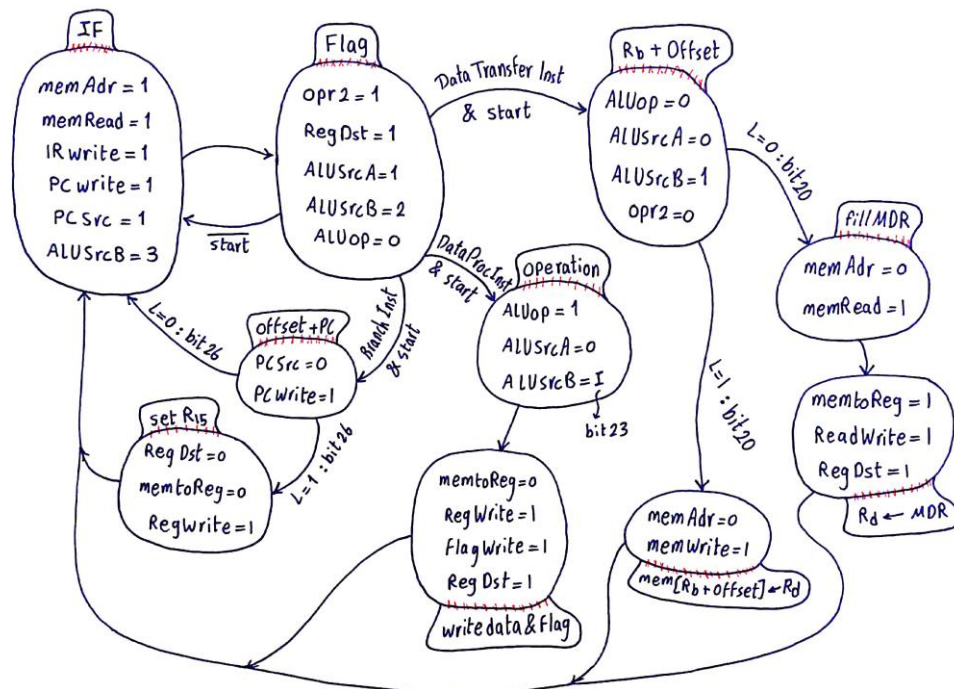 IF
memAdr = 1
memRead = 1
IRwrite = 1
PCwrite = 1
PCSrc = 1
ALUSrcB = 3
Flag
Opr2 = 1
RegDst = 1
ALUSrcA = 1
ALUSrcB = 2
ALUop = 0
start
DataTransfer Inst
& start
Rb + Offset
ALUop = 0
ALUSrcA = 0
ALUSrcB = 1
opr2 = 0
L=0 : bit20
fill MDR
memAdr = 0
memRead = 1
memtoReg = 1
ReadWrite = 1
RegDst = 1
Rd ← MDR
L=1 : bit20
memAdr = 0
memWrite = 1
mem[Rb+Offset] ← Rd
DataProcInst
& start
operation
ALUop = 1
ALUSrcA = 0
ALUSrcB = I
bit23
memtoReg = 0
RegWrite = 1
FlagWrite = 1
RegDst = 1
write data & flag
Branch Inst
& start
offset + PC
PCSrc = 0
PCWrite = 1
L=0 : bit26
L=1 : bit26
set R15
RegDst = 0
memtoReg = 0
RegWrite = 1